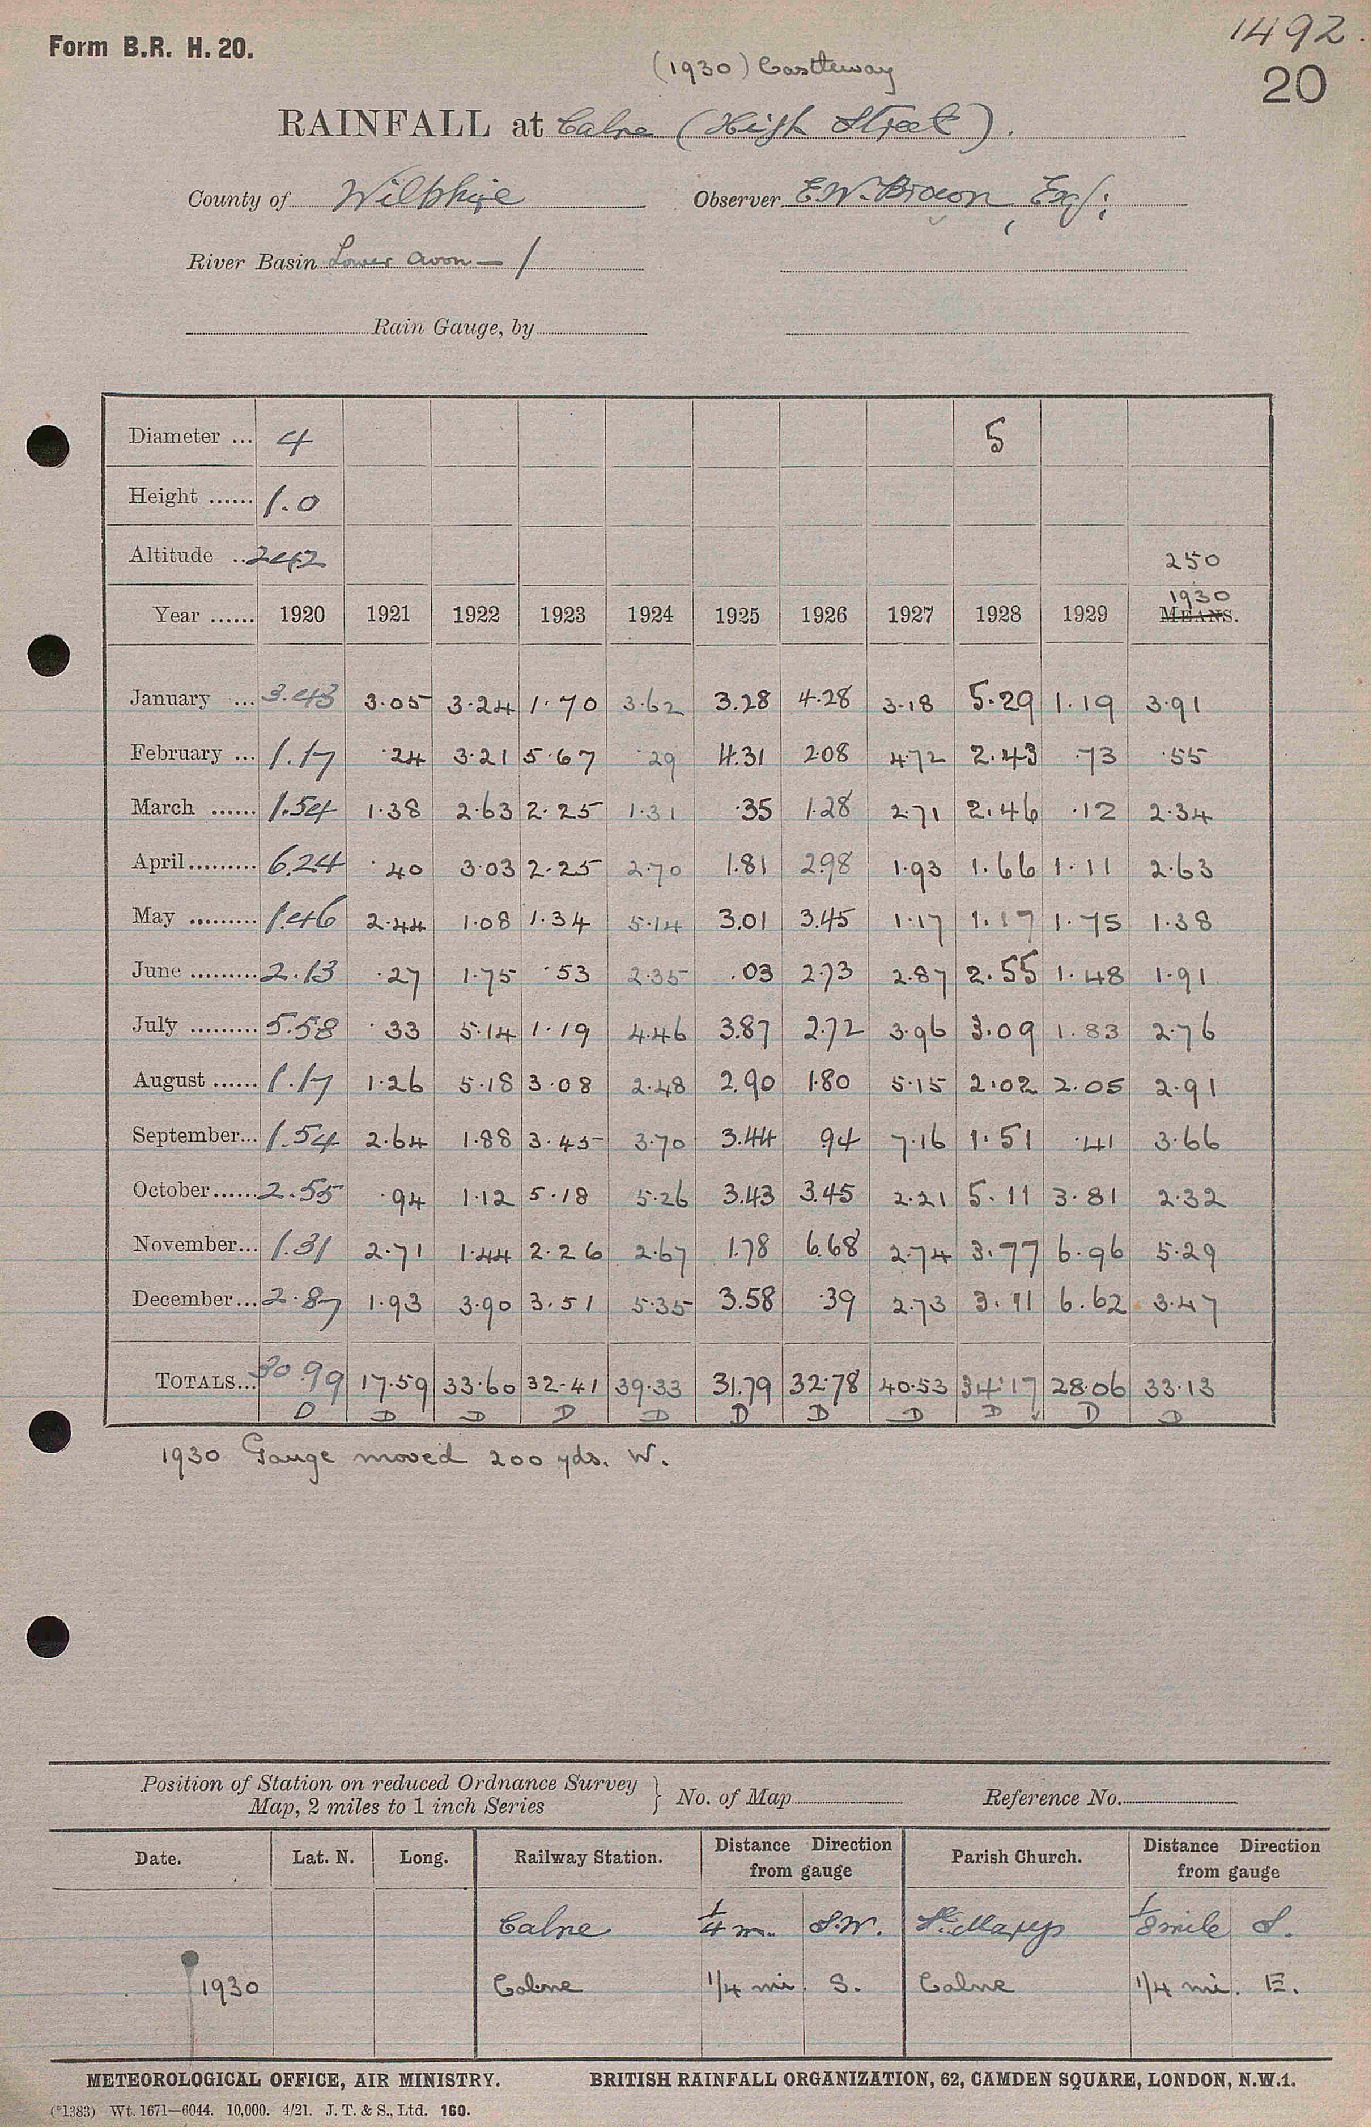 1492.
Form B.R. H. 20.
(1930) Castleway
20
RAINFALL at Calne (High Street).
County of Wiltshire Observer E.W. Brown, Esq;
River Basin Lower Avon — 1
Rain Gauge, by
Diameter ... 4 5
Height ...... 1.0
Altitude .. 242 250
1930
Year ...... 1920 1921 1922 1923 1924 1925 1926 1927 1928 1929 MEANS.
January ... 3.43 3.05 3.24 1.70 3.62 3.28 4.28 3.18 5.29 1.19 3.91
February ... 1.17 .24 3.21 5.67 .29 4.31 2.08 4.72 2.43 .73 .55
March ...... 1.54 1.38 2.63 2.25 1.31 .35 1.28 2.71 2.46 .12 2.34
April ......... 6.24 .40 3.03 2.25 2.70 1.81 2.98 1.93 1.66 1.11 2.63
May ......... 1.46 2.44 1.08 1.34 5.14 3.01 3.45 1.17 1.17 1.75 1.38
June ......... 2.13 .27 1.75 .53 2.35 .03 2.73 2.87 2.55 1.48 1.91
July ......... 5.58 .33 5.14 1.19 4.46 3.87 2.72 3.96 3.09 1.83 2.76
August ...... 1.17 1.26 5.18 3.08 2.48 2.90 1.80 5.15 2.02 2.05 2.91
September... 1.54 2.64 1.88 3.45 3.70 3.44 .94 7.16 1.51 .41 3.66
October ...... 2.55 .94 1.12 5.18 5.26 3.43 3.45 2.21 5.11 3.81 2.32
November... 1.31 2.71 1.44 2.26 2.67 1.78 6.68 2.74 3.77 6.96 5.29
December... 2.87 1.93 3.90 3.51 5.35 3.58 .39 2.73 3.11 6.62 3.47
TOTALS... 30.99 17.59 33.60 32.41 39.33 31.79 32.78 40.53 34.17 28.06 33.13
D D D D D D D D D D D
1930 Gauge moved 200 yds. W.
Position of Station on reduced Ordnance Survey
Map, 2 miles to 1 inch Series } No. of Map Reference No.
Date. Lat. N. Long. Railway Station. Distance Direction from gauge Parish Church. Distance Direction from gauge
Calne 1/4 m. S.W. St. Marys 1/8 mile S.
1930 Calne 1/4 mi. S. Calne 1/4 mi. E.
METEOROLOGICAL OFFICE, AIR MINISTRY. BRITISH RAINFALL ORGANIZATION, 62, CAMDEN SQUARE, LONDON, N.W.1.
(*1383) Wt. 1671—6044. 10,000. 4/21. J. T. & S., Ltd. 160.